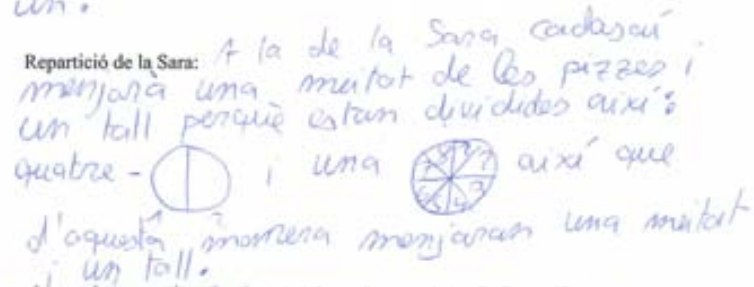 un.
Repartició de la Sara: A la de la Sara cadascú
menjarà una meitat de les pizzes i
un tall perquè estan dividides així:
quatre - i una així que
d'aquesta manera menjaran una meitat
i un tall.